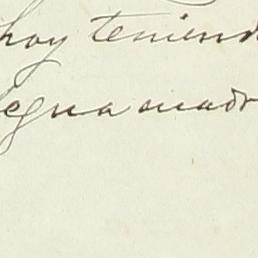 hoy teniend
legua cuadr